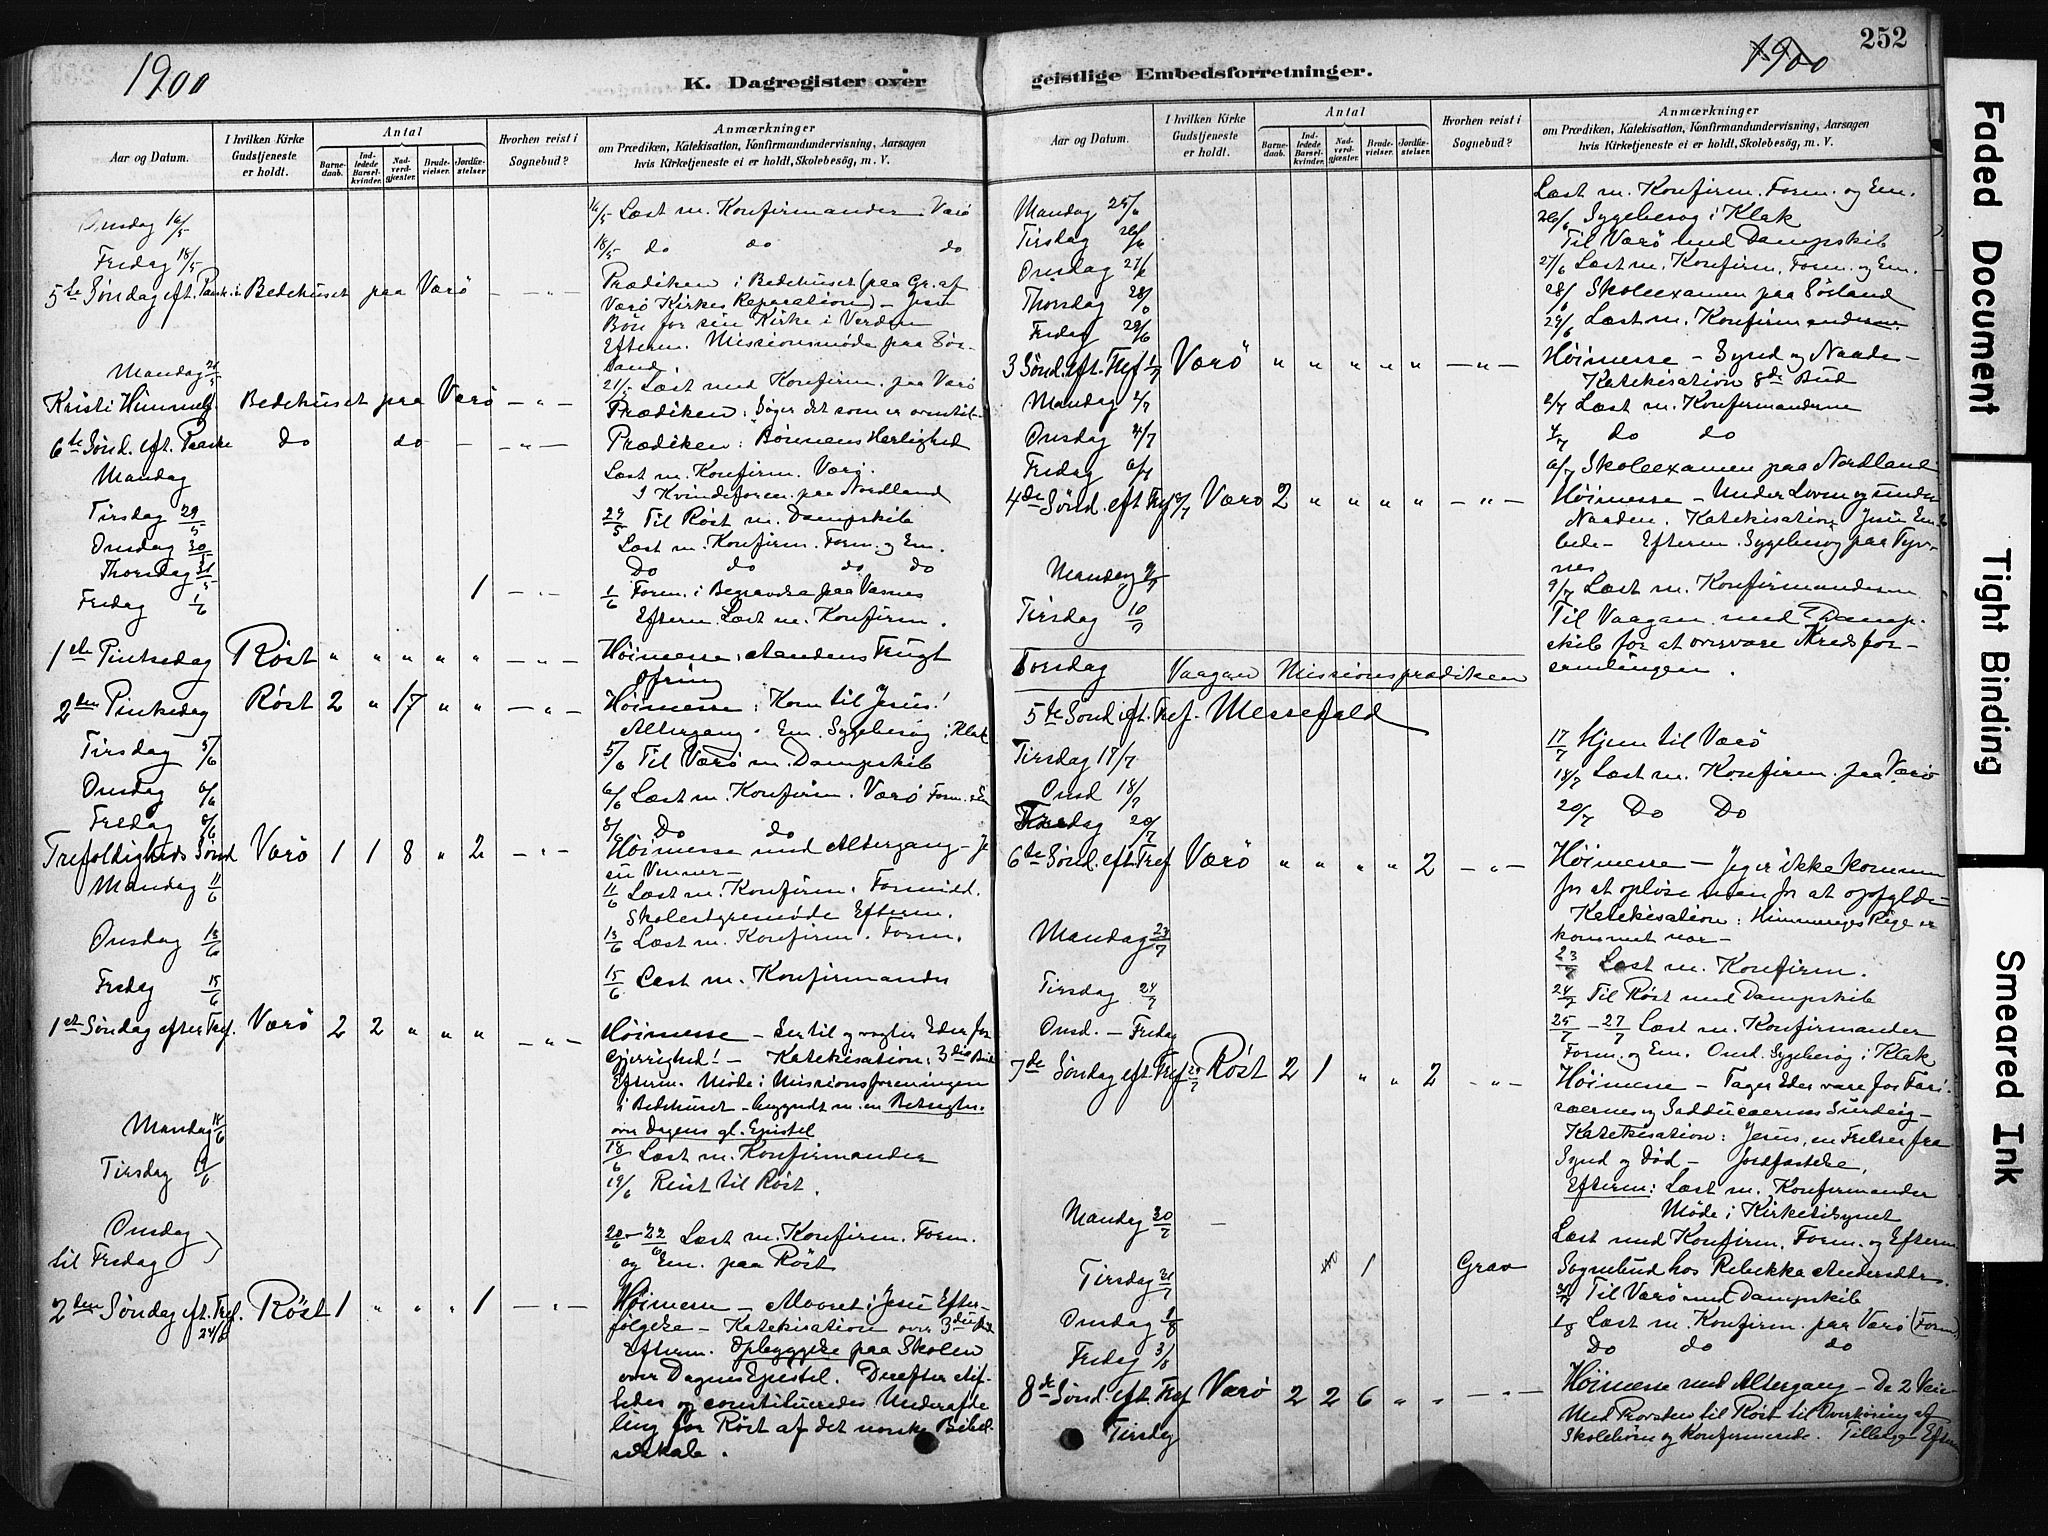 1900
K. Dagregister over
Aar og Datum.
I hvilken Kirke Gudstjeneste er holdt.
Antal
Barnedaab.
Indledede Barselkvinder.
Nadverdgjæster.
Brudevielser.
Jordfæstelser
Hvorhen reist i Sognebud?
Anmærkninger
om Prædiken, Katekisation, Konfirmandundervisning, Aarsagen
hvis Kirketjeneste ei er holdt, Skolebesög, m. V.
Onsdag 16/5 16/5 Læst m. Konfirmander Værö
Fredag 18/5 18/5 do do do
5te Søndag eft. Paaske Bedehuset paa Værö – " – Prædiken i Bedehuset (paa Gr. af
Værö Kirkes Reparation) – Jesu
Bön for sin Kirke i Verden
Efterm. Missionsmöde paa Sör-
land
Mandag 21/5 21/5 Læst med Konfirm. paa Værö
Kristi Himmelf. Bedehuset paa Værö – " – Prædiken: Søger det som er oventil
6te Sönd. eft. Paaske do do – – " – Prædiken: Bönnens Herlighed
Mandag Læst m. Konfirm. Værö.
I Kvindeforen. paa Nordland
Tirsdag 29/5 29/5 Til Röst m. Dampskib
Onsdag 30/5 Læst m. Konfirm. Form. og Em.
Thorsdag 31/5 Do do do do
Fredag 1/6 1 – " – 1/6 Form. i Begravelse paa
Efterm. Læst m. Konfirm.
1ste Pintsedag Röst " " " " " – " – Höimesse: Aandens Frugt
Ofring
2den Pintsedag Röst 2 " 17 " " – " – Höimesse: Kom til Jesus!
Altergang. Em. Sygebesög i Klak
Tirsdag 5/6 5/6 Til Værö m. Dampskib
Onsdag 6/6 6/6 Læst m. Konfirm. Værö Form. & Em
Fredag 8/6 8/6 Do do
Trefoldigheds Sönd Værö 1 1 8 " 2 – " – Höimesse med Altergang – Je
su Venner –
Mandag 11/6 11/6 Læst m. Konfirm. Formidd.
Skolestyremöde Efterm.
Onsdag 13/6 13/6 Læst m. Konfirm. Form.
Fredag 15/6 15/6 Læst m. Konfirmander
1ste Søndag efter Tref. Værö 2 2 " " " – " – Höimesse – Ser til og vogter Eder for
Gjerrighed! – Katekisation: 3die Bud
Efterm. Möde i Missionsforeningen
i Bedehuset – begyndt m. en Betragtn.
over Dagens gl. Epistel
Mandag 18/6 18/6 Læst m. Konfirmander
Tirsdag 19/6 19/6 Reist til Röst.
Onsdag
til Fredag 20/6 – 22/6 Læst m. Konfirm. Form.
og Em. paa Röst
2den Søndag eft. Tref. 24/6 Röst 1 " " " 1 – " – Höimesse – Alvoret i Jesu Efter-
følgelse – Katekisation over 3die Bud
Efterm. Opbyggelse paa Skolen
over Dagens Epistel. Derefter
og constitueredes Underafde
ling for Röst af det norske Bibel-
selskab.
252
1900
geistlige Embedsforretninger.
Aar og Datum.
I hvilken Kirke Gudstjeneste er holdt.
Antal
Barnedaab.
Indledede Barselkvinder.
Nadverdgjæster.
Brudevielser.
Jordfæstelser.
Hvorhen reist i Sognebud?
Anmærkninger
om Prædiken, Katekisation, Konfirmandundervisning, Aarsagen
hvis Kirketjeneste ei er holdt, Skolebesög, m. V.
Mandag 25/6 Læst m. Konfirm. Form. og Em.
Tirsdag 26/6 26/6 Sygebesög i Klak
Til Værö med Dampskib
Onsdag 27/6 27/6 Læst m. Konfirm. Form. og Em.
Thorsdag 28/6 28/6 Skoleexamen paa Sörland
Fredag 29/6 29/6 Læst m. Konfirmanderne
3 Sönd. eft. Tref 1/7 Værö " " " " " – " – Höimesse – Synd og Naade –
Katekisation 8de Bud
Mandag 2/7 2/7 Læst m. Konfirmanderne
Onsdag 4/7 4/7 do do
Fredag 6/7 6/7 Skoleexamen paa Nordland
4de Sönd. eft Tref 8/7 Værö 2 " " " " – " – Höimesse – Under Loven og under
Naaden. Katekisation Jesu Em
bede – Efterm. Sygebesög paa Tyv-
nes
Mandag 9/7 9/7 Læst m. Konfirmanderne
Tirsdag 10/7 Til Vaagan med Damp-
skib for at overvære Kredsfor-
samlingen.
Torsdag Vaagan Missionsprædiken
5te Sönd. eft. Tref. Messefald
Tirsdag 17/7 17/7 Hjem til Værö
Onsd 18/7 18/7 Læst m. Konfirm. paa Værö
Fredag 20/7 20/7 Do Do
6te Sönd. eft. Tref Værö " " " " 2 – " – Höimesse – Jeg er ikke kommen
for at oplöse men for at opfylde –
Katekisation: Himmeriges Rige er
kommet nær –
Mandag 23/7 23/7 Læst m. Konfirm.
Tirsdag 24/7 24/7 Til Röst med Dampskib
Onsd. – Fredag 25/7 – 27/7 Læst m. Konfirmander
Form. og Em. Onsd. Sygebesög i Klak
7de Söndag eft. Tref 29/7 Röst 2 1 " " 2 – " – Höimesse – Tager Eder vare for Fari-
sæernes og Sadducæernes Surdeig –
Katekisation: Jesus, en Frelser fra
Synd og Död – Jordfæstelse,
Efterm: Læst m. Konfirmander
Möde i Kirketilsynet
Mandag 30/7 – Læst med Konfirm. Form. og Efterm
Tirsdag 31/7 1 Grav Sognebud hos Rebekka Andersdtr.
31/7 Til Værö med Dampskib
Onsdag 1/8 1/8 Læst m. Konfirm. paa Værö (Form)
Fredag 3/8 Do do do
8de Sönd. eft Tref Værö 2 2 6 " " – " – Höimesse med Altergang – De 2 Veie
Tirsdag Med Provsten til Röst til Overhöring af
Skolebörn og Konfirmerede. Tilbage Efterm
Faded Document
Tight Binding
Smeared Ink